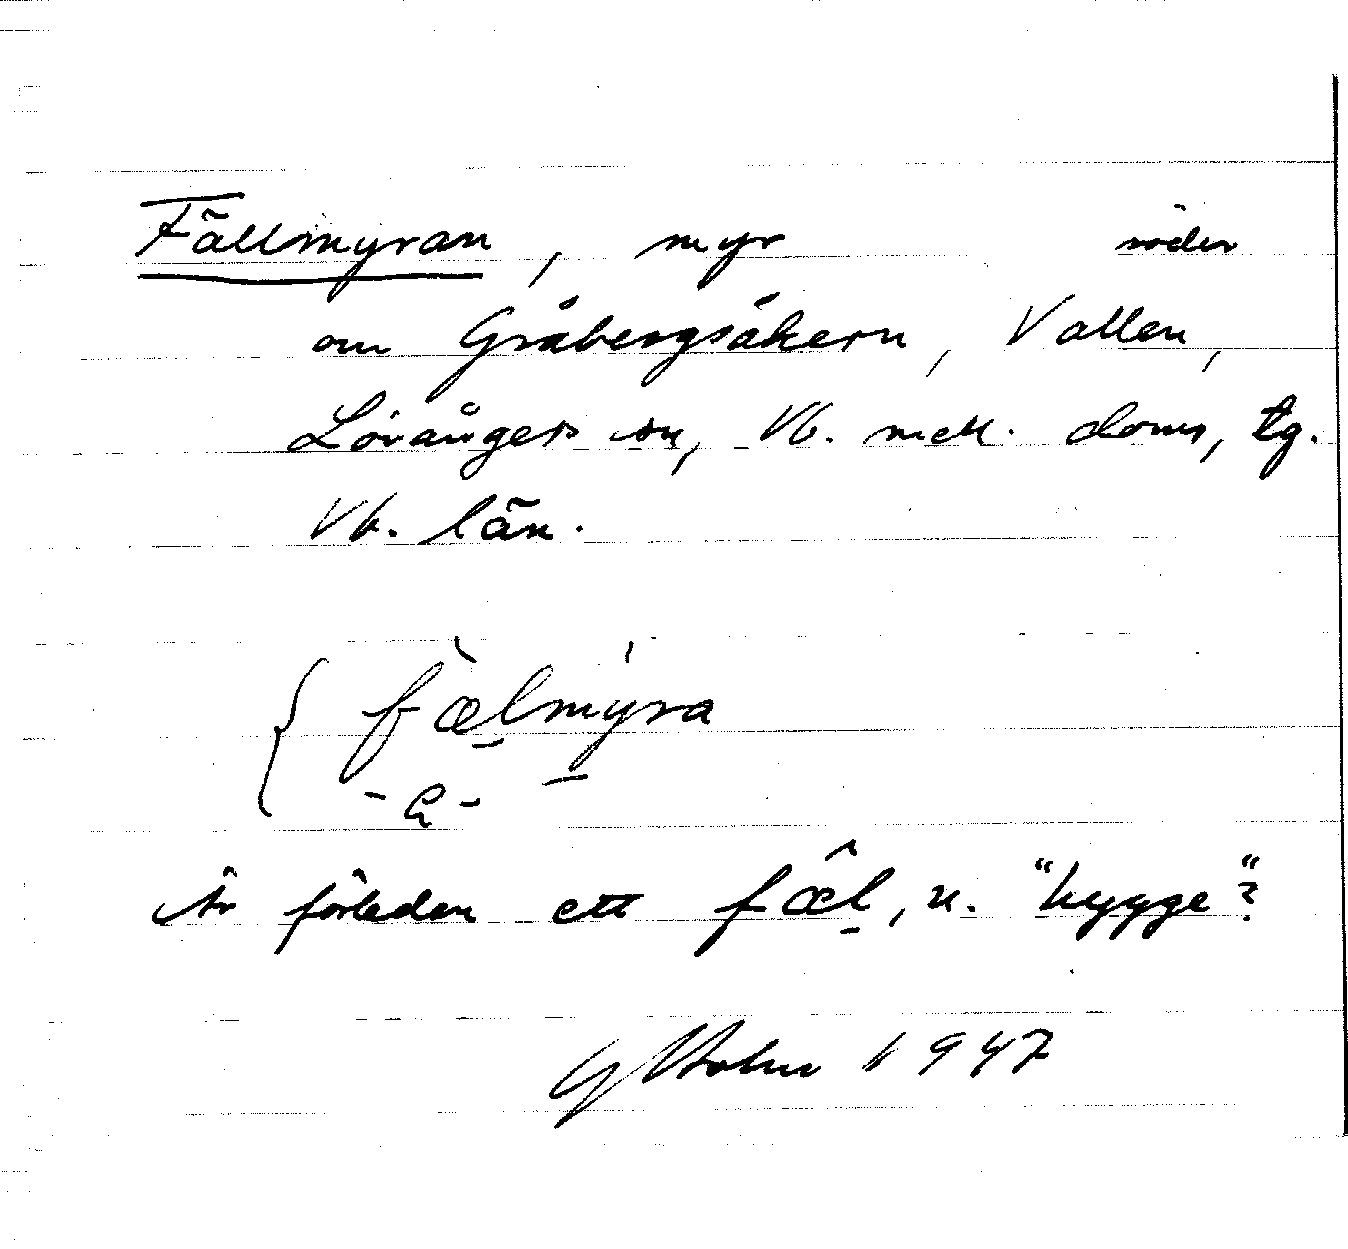 Fällmyran, myr söder
om Gråbergsåkern, Vallen,
Lövångers sn, Vb. mell. doms, tg.
Vb. län.
{ fæ̀lmýra
-a-
Är förleden ett fæ̂l, n. "hygge"?
G Holm 1947